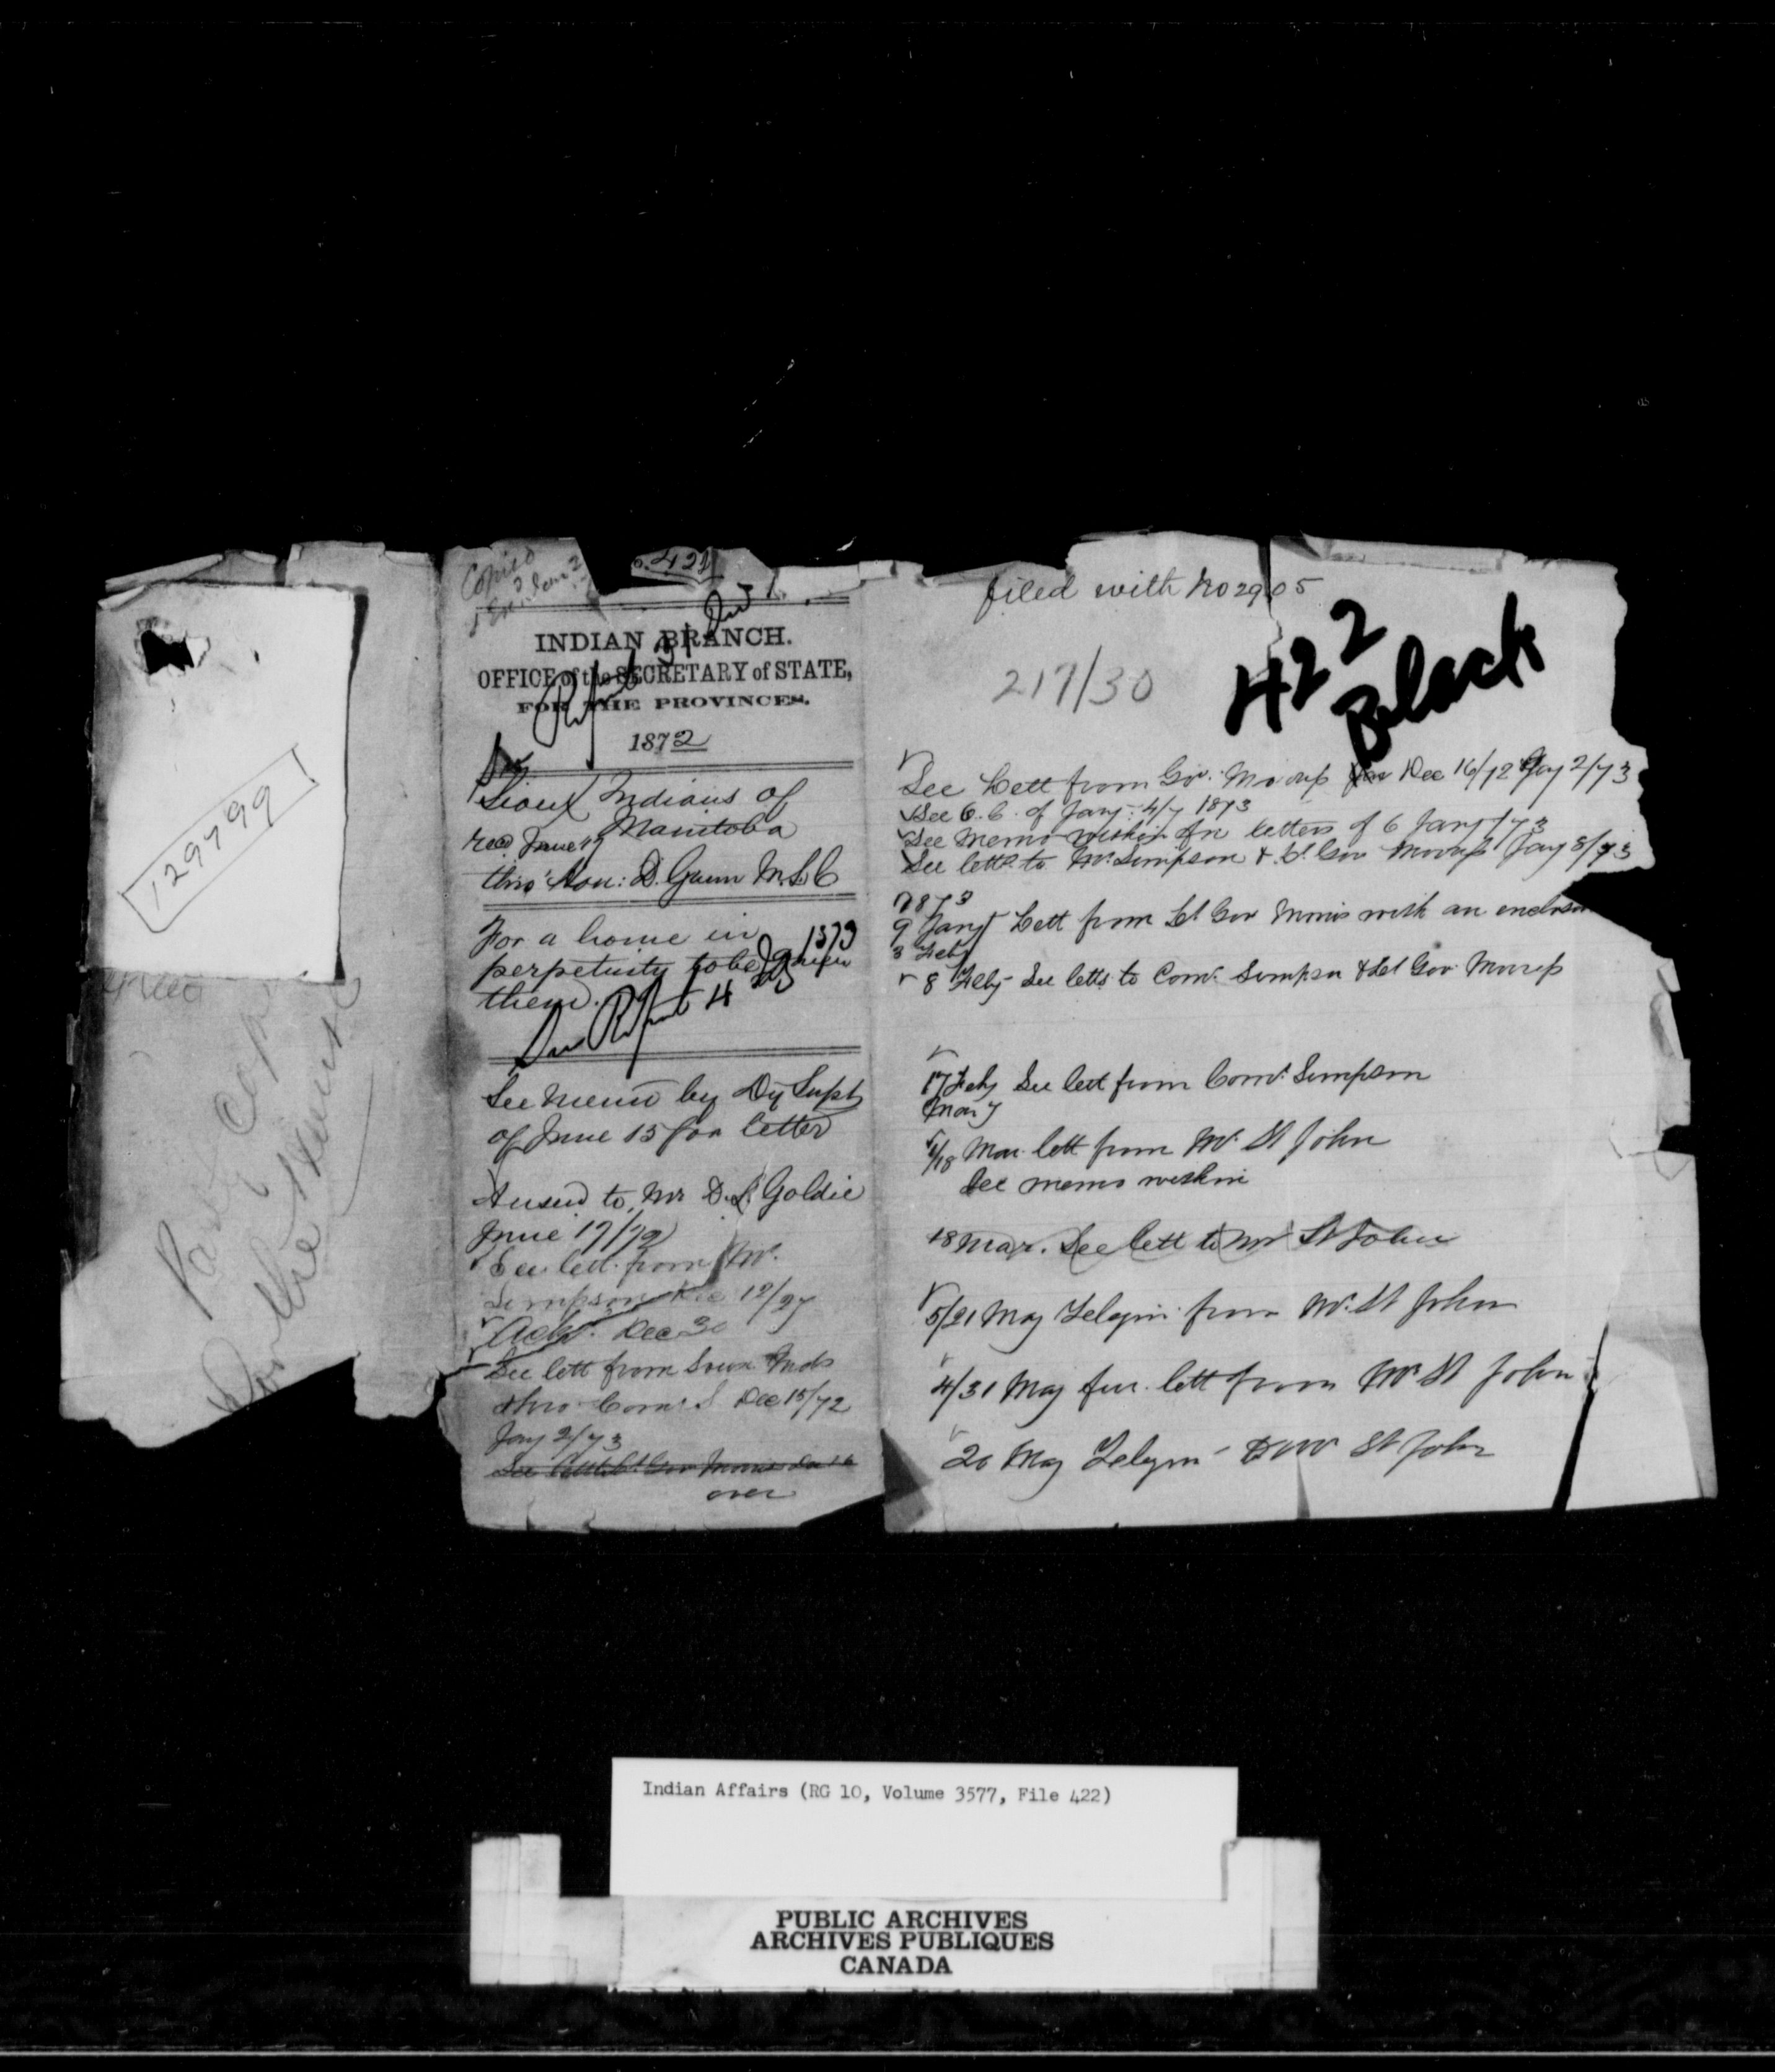 129799
Copied
o. 422
INDIAN BRANCH.
OFFICE of the SECRETARY of STATE,
FOR THE PROVINCES.
1872
Sioux Indians of
Manitoba
recd June 19
thro' Hon: D. Gunn M.L.C
For a home in
perpetuity to be given
them.
1873
See memo by Dy Supt
of June 15 for letter
Answd to Mr D. L. Goldie
June 17/72
See lett. from Mr.
Simpson Dec 12/27
Ackd. Dec 30
See lett from Sioux Inds
thro Comr. S Dec 15/72
Jay 2/73
See lett Lt Gov Morris Dec 16
over
filed with No 2905
217/30
422
Black
See Lett from Gov. Morris Dec 16/72 Jay 2/73
See O.C. of Jany 4/7 1873
See memo within for letters of 6 Jany/73
See letts to Mr. Simpson & Lt. Gov Morris Jay 8/73
1873
9 Jany Lett from Lt Gov Morris with an enclosure
3 Feby
8 Feby See letts to Comr. Simpson & Lt Gov Morris
17 Feby See lett from Comr. Simpson
Mar 7
/18 Mar. lett from Mr. St John
See memo within
18 Mar. See lett to Mr St John
5/21 May Telegm from Mr. St John
4/31 May fur. lett from Mr St John
20 May Telegm to Mr St John
Indian Affairs (RG 10, Volume 3577, File 422)
PUBLIC ARCHIVES
ARCHIVES PUBLIQUES
CANADA